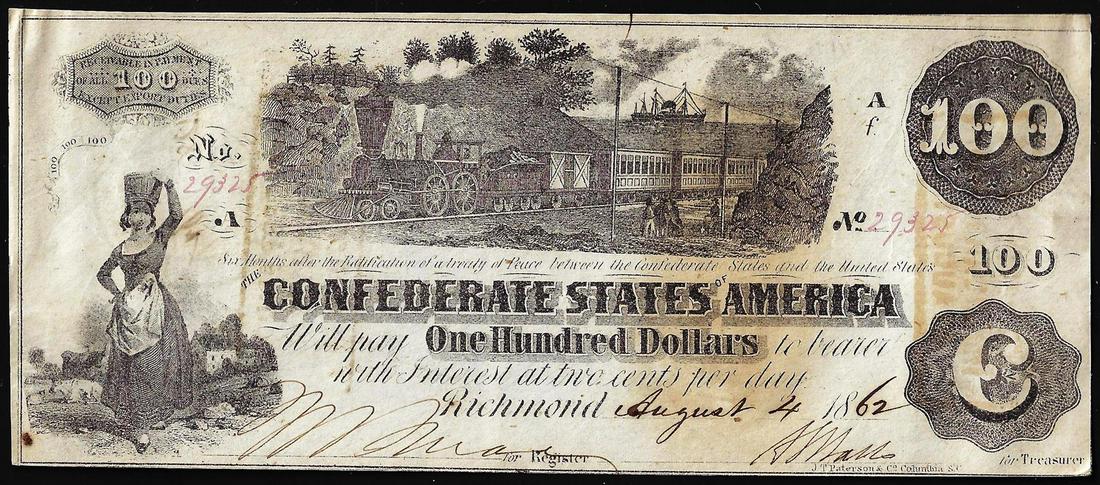 RECEIVABLE IN PAYMENT
OF ALL 100 DUES
EXCEPT EXPORT DUTIES
100 100 100
No.
29325
A
A
f.
100
No 29325
100
Six Months after the Ratification of a treaty of Peace between the Confederate States and the United States
THE CONFEDERATE STATES OF AMERICA
Will pay One Hundred Dollars to bearer
with Interest at two cents per day
Richmond August 4 1862
C
for Register
for Treasurer
J.T. Paterson & Co. Columbia S.C.